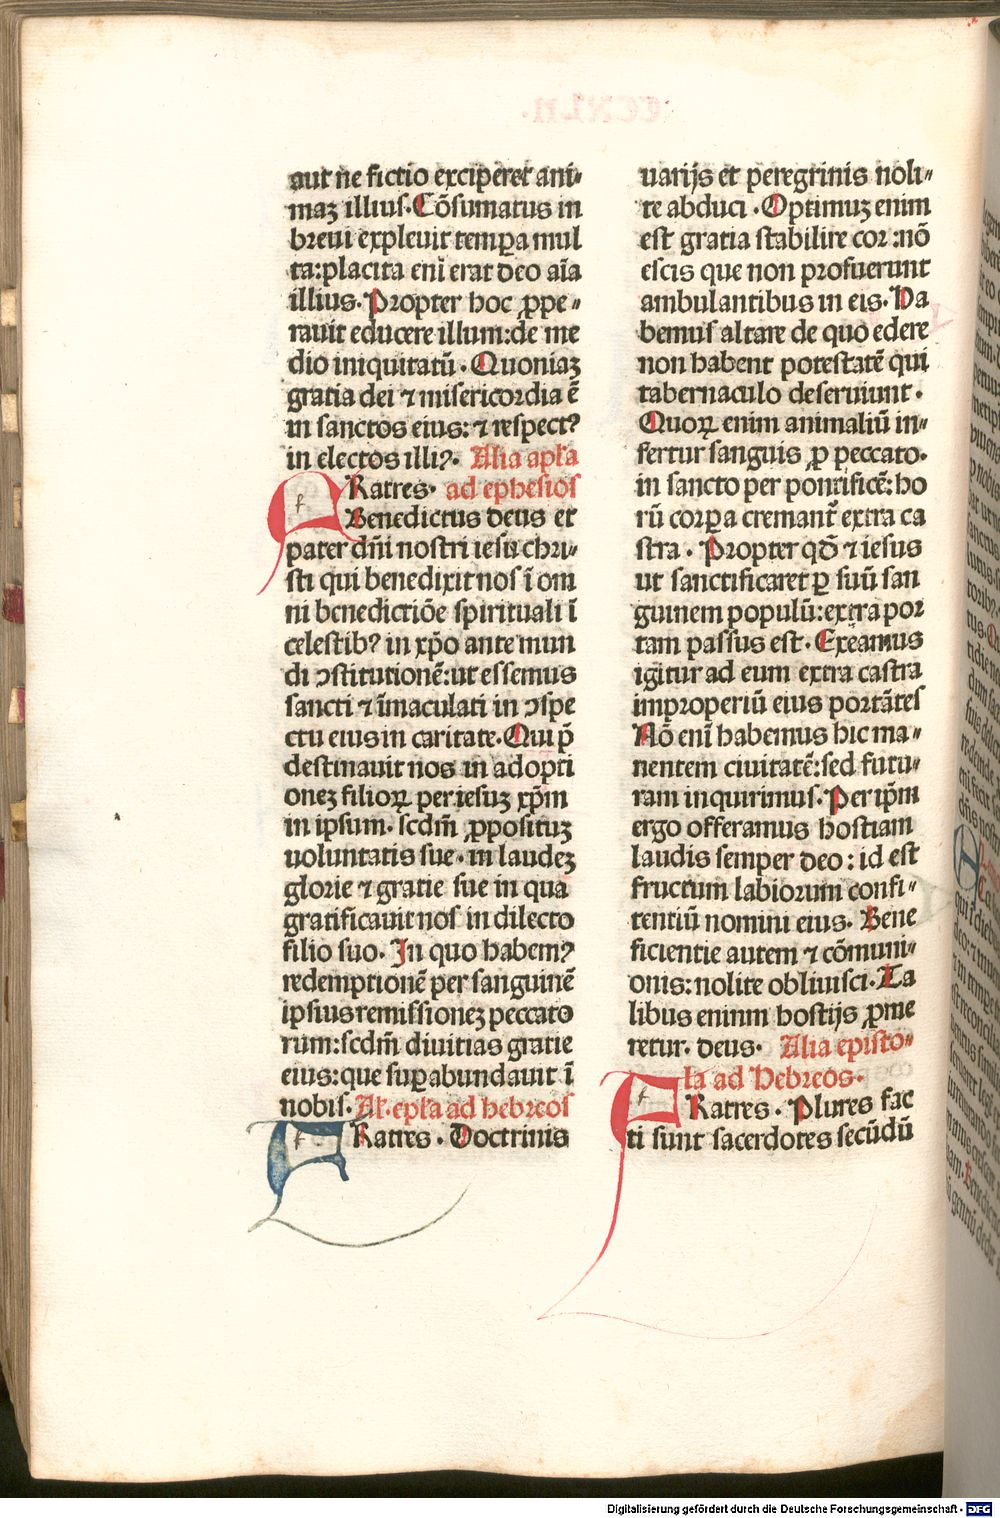 aut ne fictio exciperet ani-
maꝫ illius. Cōsumatus in
breui expleuit tempꝑa mul
ta:placita enī erat deo aīa
illius. Propter hoc ꝓpe-
rauit educere illum:de me
dio iniquitatū. Quoniaꝫ
gratia dei ⁊ misericordia ē
in sanctos eius: ⁊ respectꝰ
in electos illiꝰ. Alia epła
Ratres. ad ephesios
Benedictus deus et
pater dn̄i nostri iesu chri-
sti qui benedixit nos ī om
ni benedictiōe spirituali ī
celestibꝰ in xp̄o ante mun
di ↄstitutionē:ut essemus
sancti ⁊ īmaculati in ↄspe
ctu eius in caritate. Qui p̄
destinauit nos in adopti
oneꝫ filioꝝ per iesuꝫ xp̄m
in ipsum. scdm̄ ꝓpositūꝫ
uoluntatis sue. in laudeꝫ
glorie ⁊ gratie sue in qua
gratificauit nos in dilecto
filio suo. In quo habemꝰ
redemptionē per sanguinē
ipsius remissioneꝫ peccato
rum:scdm̄ diuitias gratie
eius:que suꝑabundauit ī
nobis. Al. epła ad hebreos
Ratres. Doctrinis
uarijs et peregrinis noli-
te abduci. Optimuꝫ enim
est gratia stabilire cor:nō
escis que non profuerunt
ambulantibus in eis. Ha
bemus altare de quo edere
non habent potestatē qui
tabernaculo deseruiunt.
Quoꝝ enim animaliū in-
fertur sanguis ꝓ peccato.
in sancto per pontificē:ho
rū corꝑa cremant᷑ extra ca
stra. Propter qd̄ ⁊ iesus
ut sanctificaret ꝑ suū san
guinem populū:extra por
tam passus est. Exeamus
igitur ad eum extra castra
improperiū eius portātes
Nō enī habemus hic ma-
nentem ciuitatē:sed futu-
ram inquirimus. Per ip̄m
ergo offeramus hostiam
laudis semper deo: id est
fructum labiorum confi-
tentiū nomini eius. Bene
ficientie autem ⁊ cōmuni-
onis:nolite obliuisci. Ta
libus eninm hostijs ꝓme
retur. deus. Alia episto-
la ad Hebreos.
Ratres. Plures fac
ti sunt sacerdotes secūdū
Digitalisierung gefördert durch die Deutsche Forschungsgemeinschaft - DFG